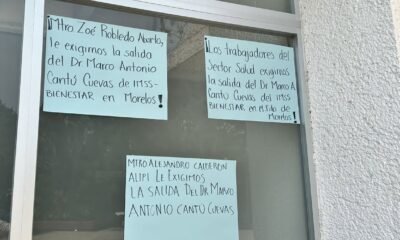 ¡Mtro Zoé Robledo Aburto,
le exigimos la salida
del Dr Marco Antonio
Cantú Cuevas de IMSS-
BIENESTAR en Morelos!
¡Los trabajadores del
Sector Salud exigimos
la salida del Dr Marco A
Cantú Cuevas del IMSS
BIENESTAR en el Edo de
Morelos!
MTRO ALEJANDRO CALDERON
ALIPI LE EXIGIMOS
LA SALIDA DEL DR MARCO
ANTONIO CANTÚ CUEVAS